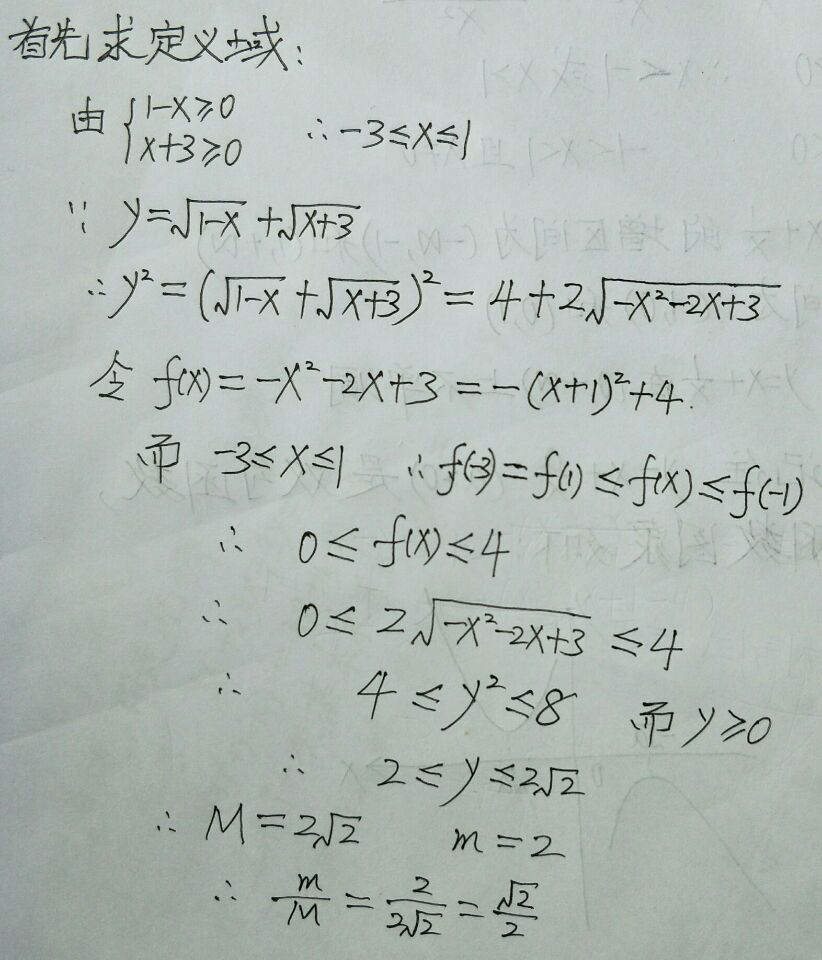 首先求定义域:
由 { 1-x≥0
x+3≥0 ∴ -3≤x≤1
∵ y=√(1-x)+√(x+3)
∴ y²=(√(1-x)+√(x+3))²=4+2√(-x²-2x+3)
令 f(x)=-x²-2x+3=-(x+1)²+4.
而 -3≤x≤1 ∴f(-3)=f(1)≤f(x)≤f(-1)
∴ 0≤f(x)≤4
∴ 0≤2√(-x²-2x+3)≤4
∴ 4≤y²≤8 而 y≥0
∴ 2≤y≤2√2
∴ M=2√2 m=2
∴ m/M=2/(2√2)=√2/2